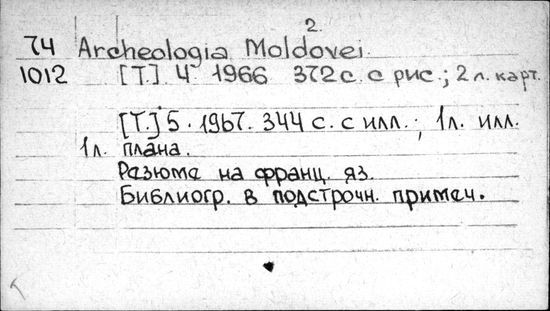 2.
74 Archeologia Moldovei.
1012 [Т.] 4 1966 372 с. с рис.; 2 л. карт.
[Т.] 5. 1967. 344 с. с илл.; 1л. илл.
1л. плана.
Разюме на франц. яз.
Библиогр. в подстрочн. примеч.